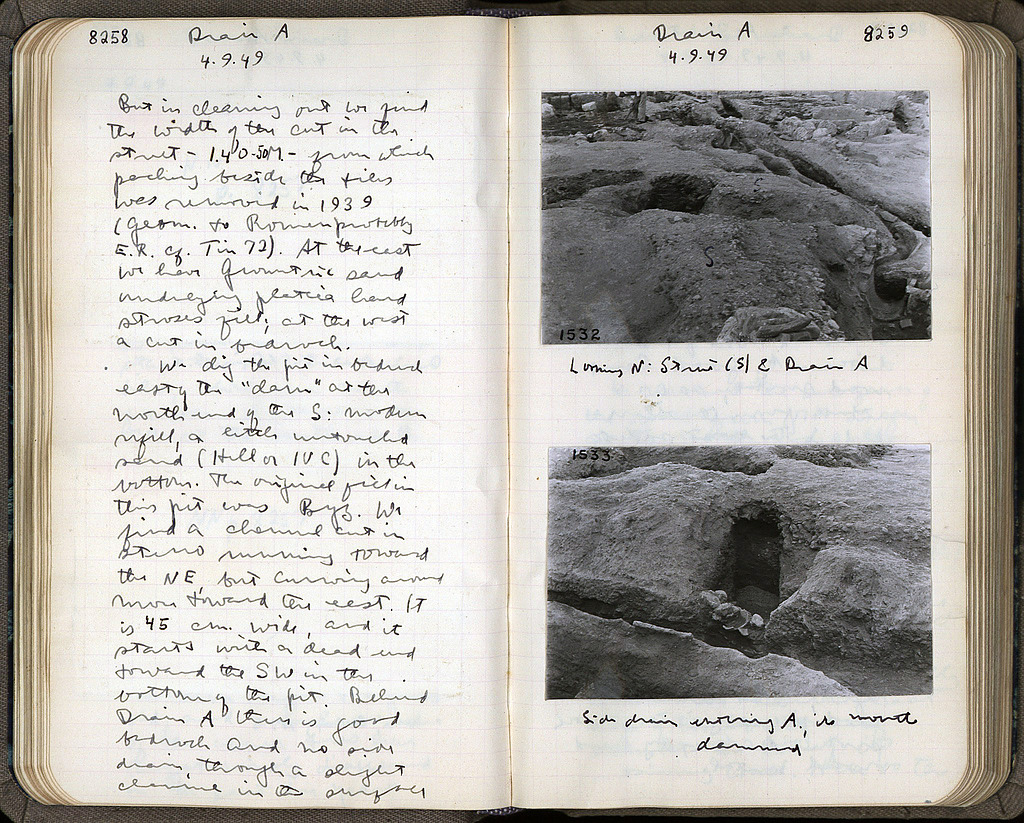 8258
Drain A
4.9.49
But in cleaning out we find
the width of the cut in the
street - 1.40-50M - from which
packing beside the tiles
was removed in 1939
(Geom. to Roman probably
E.R. cf. Tin 72). At the east
we have Geometric sand
underlying plateia hard
strosis fill; at the west
a cut in bedrock.
We dig the pit in bedrock
east of the "dam" at the
north end of the S: modern
refill, a little untouched
sand (Hell or IV C) in the
bottom. The original fill in
this pit was Byz. We
find a channel cut in
stereo running toward
the NE, but curving around
more toward the east. It
is 45 cm. wide, and it
starts with a dead end
toward the SW in the
bottom of the pit. Behind
Drain A there is good
bedrock and no side
drain, though a slight
channel in the surface
Drain A
8259
4.9.49
S
S
1532
Looking N: Street (S) & Drain A
1533
Side drain entering A, its mouth
dammed